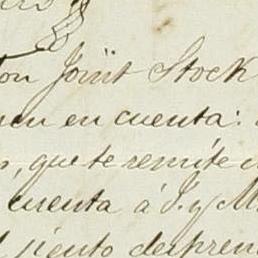 ton Joint Stock
en en cuenta:
, que te remite
cuenta á J. y M
siento despren